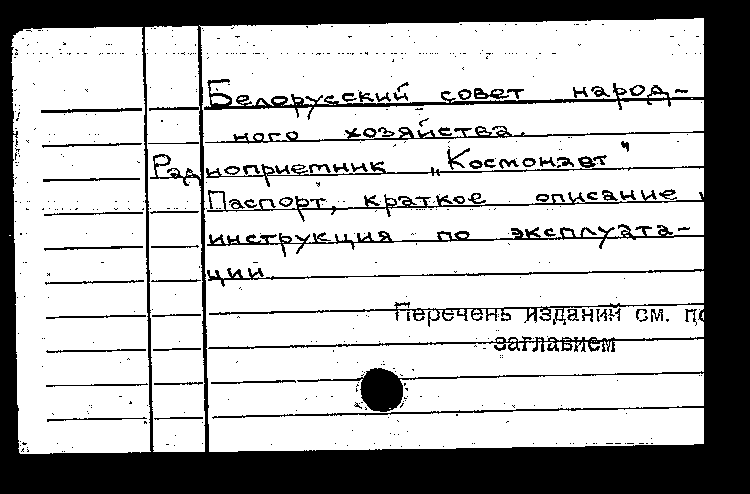 Белорусский совет народ-
ного хозяйства.
Радиоприемник „Космонавт"
Паспорт, краткое описание и
инструкция по эксплуата-
ции.
Перечень изданий см. под
заглавием